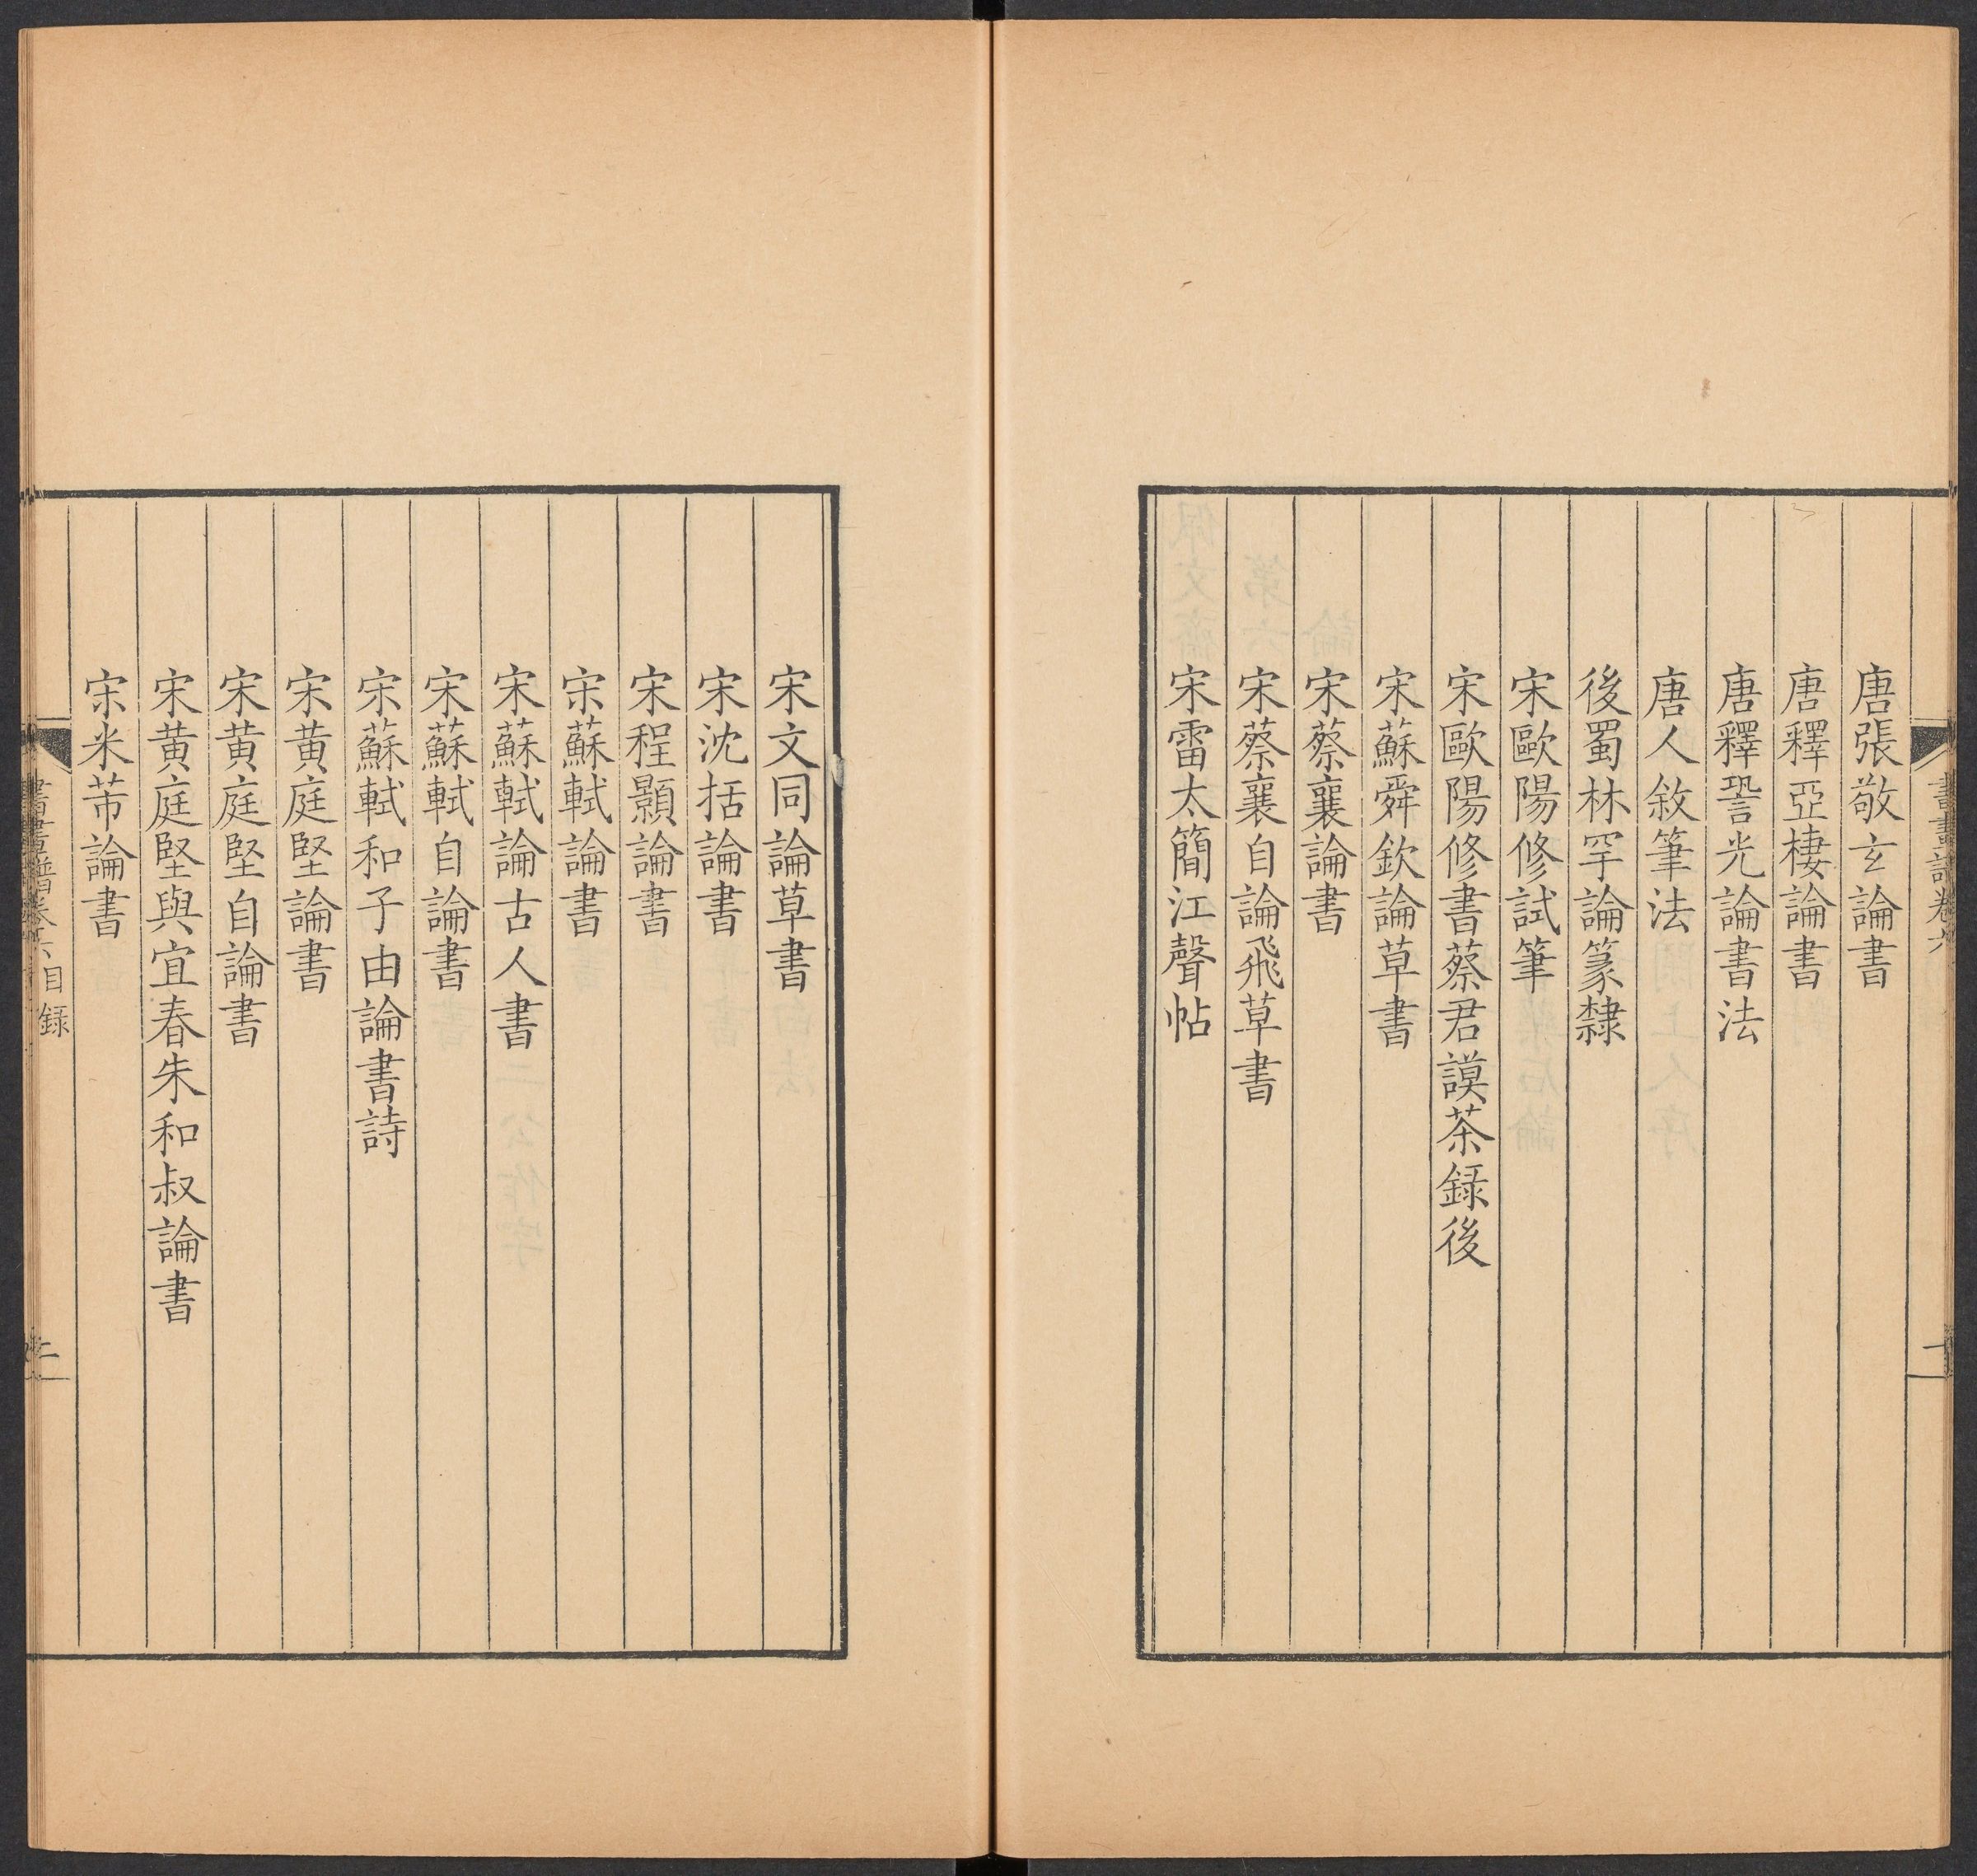 書畫譜卷六
一
唐張敬玄論書
唐釋亞棲論書
唐釋䛒光論書法
唐人敘筆法
後蜀林罕論篆隸
宋歐陽修試筆
宋歐陽修書蔡君謨茶録後
宋蘇舜欽論草書
宋蔡襄論書
宋蔡襄自論飛草書
宋雷太簡江聲帖
宋文同論草書
宋沈括論書
宋程顥論書
宋蘇軾論書
宋蘇軾論古人書
宋蘇軾自論書
宋蘇軾和子由論書詩
宋黄庭堅論書
宋黄庭堅自論書
宋黄庭堅與宜春朱和叔論書
宋米芾論書
書畫譜卷六目録
二